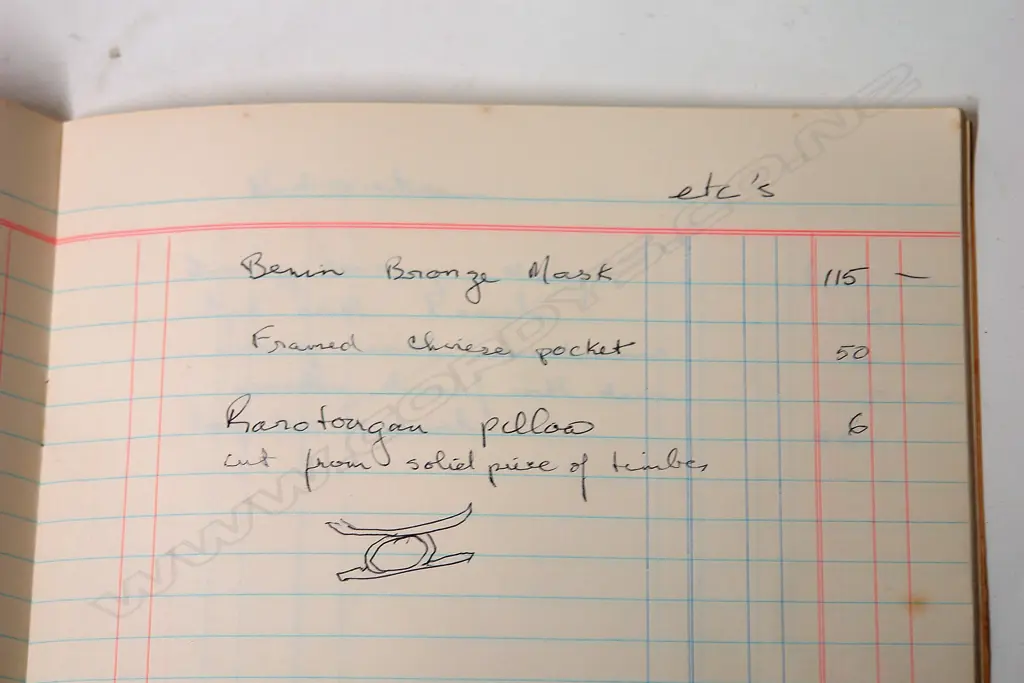 etc's
Benin Bronze Mask 115 —
Framed Chinese pocket 50
Rarotongan pillow 6
cut from solid piece of timber
WWW.CORDYS.CO.NZ